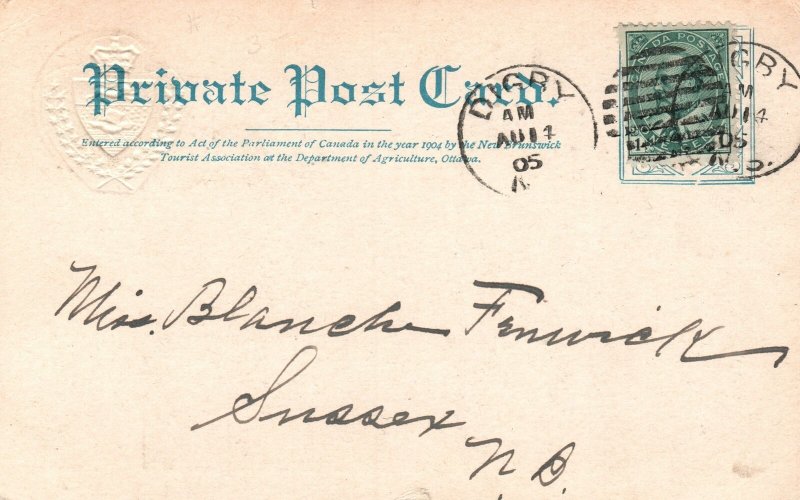 Private Post Card.
Entered according to Act of the Parliament of Canada in the year 1904 by the New Brunswick
Tourist Association at the Department of Agriculture, Ottawa.
DIGBY
AM
AU 14
05
N.
CANADA POSTAGE
IGBY
AM
AU 14
05
N.S.
Miss. Blanche Fenwick
Sussex
N.B.